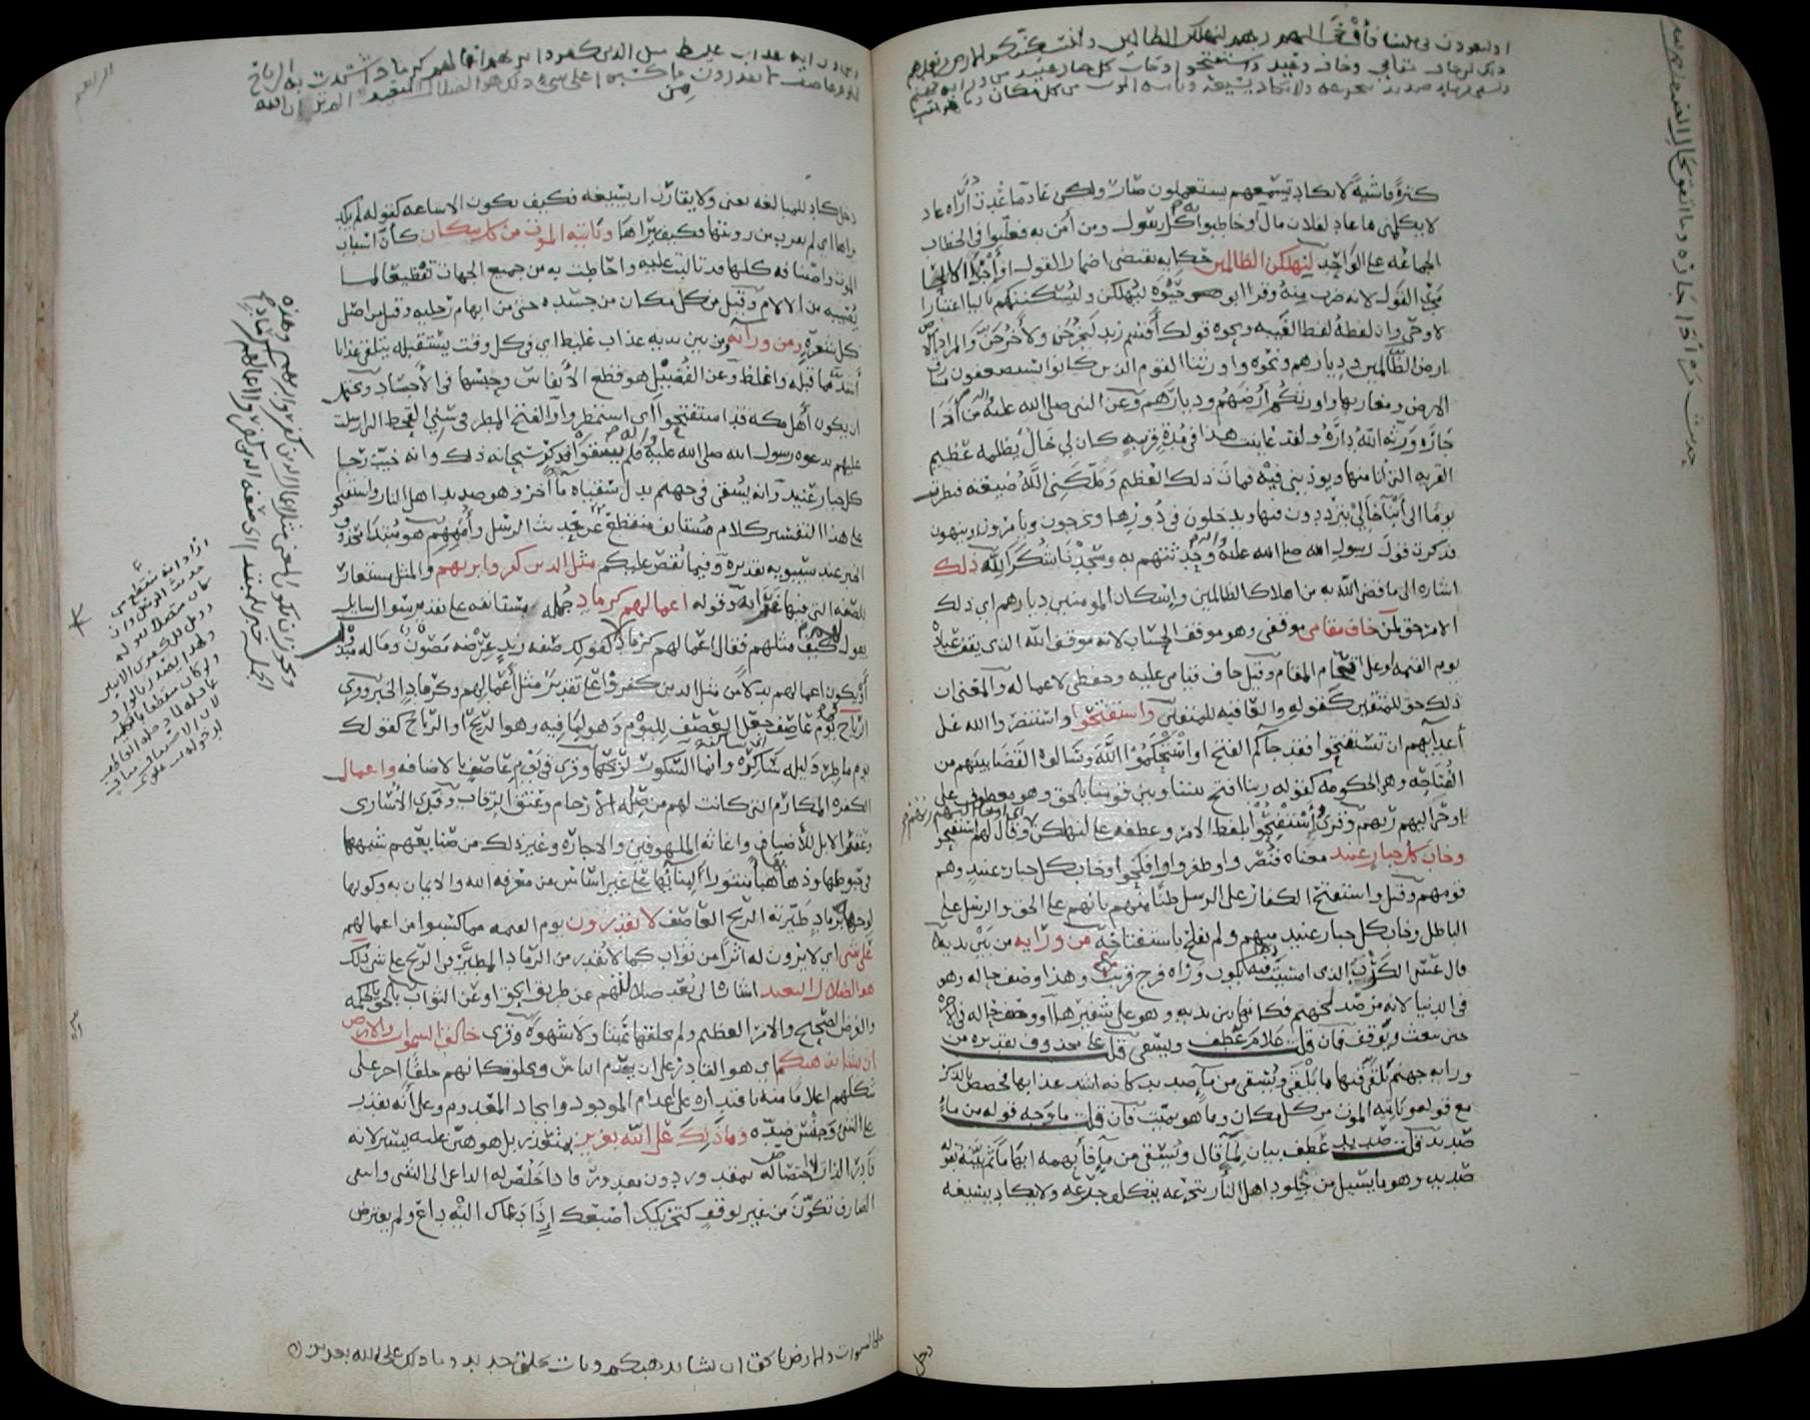 او لتعودن في ملتنا فأوحى اليهم ربهم لنهلكن الظالمين ولنسكننكم الارض من بعدهم
ذلك لمن خاف مقامي وخاف وعيد واستفتحوا وخاب كل جبار عنيد من ورائه جهنم
ويسقى من ماء صديد يتجرعه ولا يكاد يسيغه وياتيه الموت من كل مكان وما هو بميت
كثرة فاشية لا تكاد تسمعهم يستعملون صار ولكن عاد ما عدت أراه عاد
لا يكلمني ما عاد لفلان مال أو خاطبوا به كل رسول ومن آمن به فغلبوا في الخطاب
الجماعة على الواحد لنهلكن الظالمين حكاية تقتضي اضمار القول او اجرا الايحا
مجرى القول لانه ضرب منه وقرا ابو حيوة ليهلكن وليسكننكم بالياء اعتبارا
لاوحى وان لفظه لفظ الغيبة ونحوه قولك أقسم زيد ليخرجن ولأخرجن والمراد بالارض
ارض الظالمين وديارهم ونحوه واورثنا القوم الذين كانوا يستضعفون مشارق
الارض ومغاربها واورثكم أرضهم وديارهم وعن النبي صلى الله عليه وآله من آذى
جاره ورثه الله داره ولقد عاينت هذا في مدة قريبة كان لي خال يظلمه عظيم
القرية التي انا منها ويوذيني فيه فمات ذلك العظيم وملكني الله ضيعته فنظرت
يوما الى أبناء خالي يترددون فيها ويدخلون في دورها ويخرجون ويأمرون وينهون
فذكرت قول رسول الله صلى الله عليه وآله وحدثتهم به وسجدنا شكرا لله ذلك
اشارة الى ما قضى الله به من اهلاك الظالمين واسكان المومنين ديارهم اي ذلك
الامر حق لمن خاف مقامي موقفي وهو موقف الحساب لانه موقف الله الذي يقف عباده
يوم القيمة او على اقحام المقام وقيل خاف قيامي عليه وحفظي لاعماله والمعنى ان
ذلك حق للمتقين كقوله والعاقبة للمتقين واستفتحوا واستنصروا الله على
أعدائهم ان تستفتحوا فقد جاكم الفتح او استحكموا الله وسألوه القضا بينهم من
الفتاحة وهي الحكومة كقوله ربنا افتح بيننا وبين قومنا بالحق وهو معطوف على
اوحى اليهم ربهم وقرئ واستفتحوا بلفظ الامر وعطفه على لنهلكن وقال لهم استفتحوا
وخاب كل جبار عنيد معناه فنصروا وظفروا وافلحوا وخاب كل جبار عنيد وهم
قومهم وقيل واستفتح الكفار على الرسل ظنا منهم بانهم على الحق والرسل على
الباطل وخاب كل جبار عنيد منهم ولم يفلح باستفتاحه من ورايه من بين يديه
قال عسى الكرب الذي امسيت فيه يكون وراه فرج قريب وهذا وصف حاله وهو
في الدنيا لانه مرصد لجهنم فكانها بين يديه وهو على شفيرها او وصف حاله في الآخرة
حين يبعث ويوقف فان قلت علام عطف ويسقى قلت على محذوف تقديره من
ورايه جهنم يلقى فيها ما يلقى ويسقى من ماء صديد كانه اشد عذابها فخصص بالذكر
مع قوله وياتيه الموت من كل مكان وما هو بميت فان قلت ما وجه قوله من ماء
صديد قلت صديد عطف بيان لماء قال ويسقى من ماء فأبهمه ابهاما ثم بينه بقوله
صديد وهو ما يسيل من جلود اهل النار يتجرعه يتكلف جرعه ولا يكاد يسيغه
دخل
دخل كاد للمبالغة يعني ولا يقارب ان يسيغه فكيف يكون الاساغة كقوله لم يكد
يراها اي لم يقرب من رويتها فكيف يراها وياتيه الموت من كل مكان كأن اسباب
الموت واصنافه كلها قد تالبت عليه واحاطت به من جميع الجهات تفظيعا لما
يصيبه من الالام وقيل من كل مكان من جسده حتى من ابهام رجليه وقيل من اصل
كل شعرة ومن ورائه ومن بين يديه عذاب غليظ اي في كل وقت يستقبله يتلقى عذابا
أشد مما قبله واغلظ وعن الفضيل هو قطع الأنفاس وحبسها في الأجساد ويحتمل
ان يكون أهل مكة قد استفتحوا اي استمطروا والفتح المطر في سني القحط التي ارسلت
عليهم بدعوة رسول الله صلى الله عليه وآله فلم يسقوا فذكر سبحانه ذلك وانه خيب رجا
كل جبار عنيد وانه يسقى في جهنم بدل سقياه ماء آخر وهو صديد اهل النار واستفتحوا
على هذا التفسير كلام مستانف منقطع عن حديث الرسل وأممهم هو مبتدا محذوف
الخبر عند سيبويه تقديره وفيما نقص عليكم مثل الذين كفروا بربهم والمثل مستعار
للصفة التي فيها غرابة وقوله اعمالهم كرماد جملة مستانفة على تقدير سوال سايل
يقول كيف مثلهم فقال اعمالهم كرماد كقولك صفة زيد عرضه مصون وماله مبذول
أو يكون اعمالهم بدلا من مثل الذين كفروا على تقدير مثل أعمالهم وكرماد الخبر وقرئ
الرياح يوم عاصف جعل العصف لليوم وهو لما فيه وهو الريح او الرياح كقولك
يوم ماطر وليلة ساكرة وانما السكور لريحها وقرئ في يوم عاصف بالاضافة واعمال
الكفرة المكارم التي كانت لهم من صلة الأرحام وعتق الرقاب وفدي الأسارى
وعقر الابل للأضياف واغاثة الملهوفين والاجازة وغير ذلك من صنايعهم شبهها
في حبوطها وذهابها هباء منثورا لبنائها على غير اساس من معرفة الله والايمان به وكونها
لوجهه برماد طيرته الريح العاصف لا يقدرون يوم القيمة مما كسبوا من اعمالهم
على شي اي لا يرون له اثرا من ثواب كما لا يقدر من الرماد المطير في الريح على شي ذلك
هو الضلال البعيد اشارة الى بعد ضلالهم عن طريق الحق او عن الثواب بالحق بالحكمة
والغرض الصحيح والامر العظيم ولم يخلقها عبثا ولا شهوة وقرئ خالق السموات والارض
ان يشا يذهبكم اي هو القادر على ان يعدم الناس ويخلق مكانهم خلقا اخر على
شكلهم اعلاما منه باقتداره على اعدام الموجود وايجاد المعدوم وعلى أنه يقدر
على الشي وجنس ضده وما ذلك على الله بعزيز بمتعذر بل هو هين عليه يسير لانه
قادر الذات لا اختصاص له بمقدور دون مقدور فاذا خلص له الداعي الى الشي وانتفى
الصارف تكون من غير توقف كتحريك أصبعك إذا دعاك اليه داع ولم يعترض
خلق السموات والارض بالحق ان يشا يذهبكم ويات بخلق جديد وما ذلك على الله بعزيز